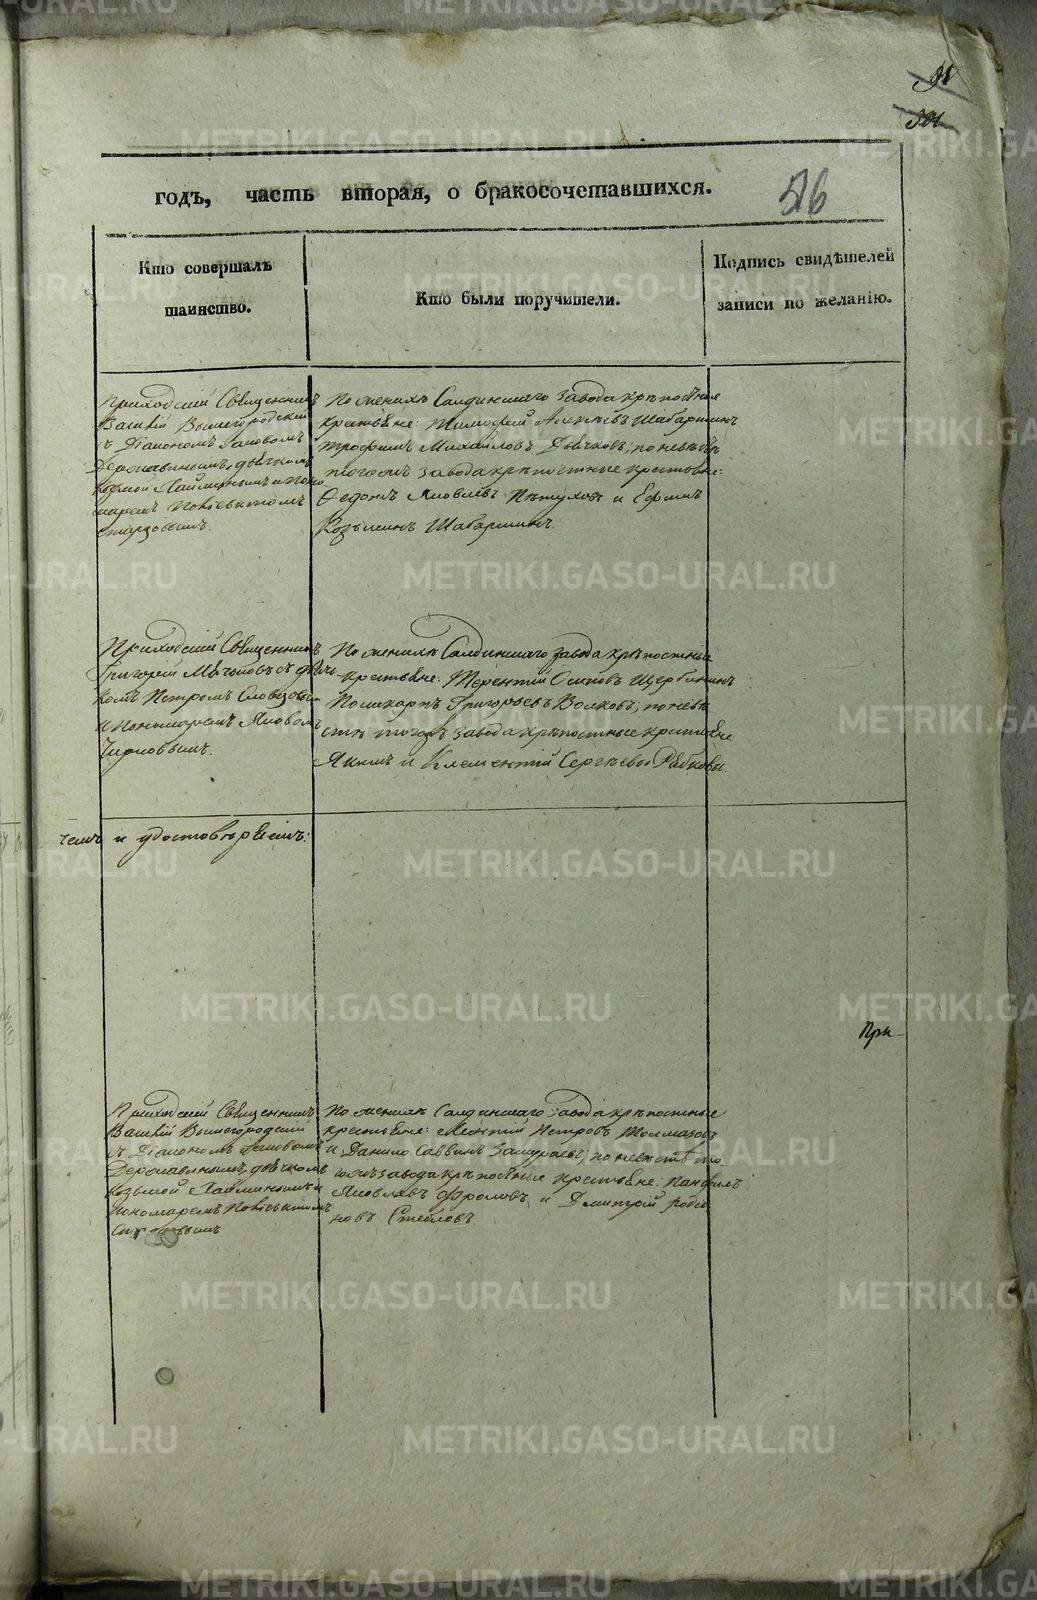 516
годъ, часть вторая, о бракосочетавшихся.
Кто совершалъ
таинство.
Кто были поручители.
Подпись свидѣтелей
записи по желанію.
Приходскій Священникъ
Василій Вышегородскій
съ Діакономъ Іаковомъ
Державинымъ, дьячкомъ
Козмой Хайминымъ и поно
маремъ
По женихѣ Салдинскаго завода крѣпостные
крестьяне: Тимофей Алексѣевъ Шабаршинъ
Трофимъ Михайловъ Дьячковъ; по невѣстѣ
тогожъ завода крѣпостные крестьяне:
Федотъ Яковлевъ Пѣтуховъ и Ефимъ
Козьминъ Шабаршинъ.
Приходскій Священникъ
Григорій с дьяч
комъ Петромъ Словцовы
и Пономаремъ Яковомъ
По женихѣ Салдинскаго завода крѣпостные
крестьяне: Терентій Осиповъ Щербининъ
Поликарпъ Григорьевъ Волковъ; по невѣ
стѣ тогожъ завода крѣпостные крестьяне
Якимъ и Клементій Сергѣевы Рябковы.
чемъ и удостовѣряемъ:
При
Приходскій Священникъ
Василій Вышегородскій
съ Діакономъ Іаковомъ
Державинымъ, дьячкомъ
Козьмой Хайминымъ и
пономаремъ
По женихѣ Салдинскаго завода крѣпостные
крестьяне: Леонтій Петровъ Толмазовъ
и Данило Саввинъ Замураевъ; по невѣстѣ то
гожъ завода крѣпостные крестьяне: Панфилъ
Яковлевъ Фроловъ и Дмитрій Роді
новъ
METRIKI.GASO-URAL.RU